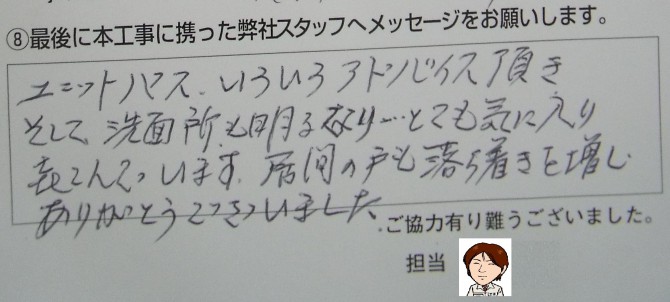 ⑧最後に本工事に携った弊社スタッフへメッセージをお願いします。
ユニットバス、いろいろアドバイス頂き
そして、洗面所も明るくなり…とても気に入り
喜こんでいます。居間の戸も落ち着きを増し
ありがとうございました
ご協力有り難うございました。
担当